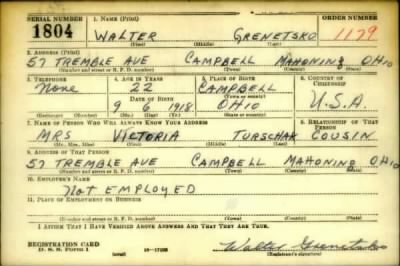 SERIAL NUMBER 1. NAME (Print) ORDER NUMBER
1804 WALTER GRENETSKO 1179
(First) (Middle) (Last)
2. ADDRESS (Print)
57 TREMBLE AVE CAMPBELL MAHONING OHIO
(Number and street or R. F. D. number) (Town) (County) (State)
3. TELEPHONE 4. AGE IN YEARS 5. PLACE OF BIRTH 6. COUNTRY OF CITIZENSHIP
None 22 CAMPBELL
DATE OF BIRTH (Town or county)
9 6 1918 OHIO U.S.A.
(Mo.) (Day) (Yr.) (State or country)
7. NAME OF PERSON WHO WILL ALWAYS KNOW YOUR ADDRESS 8. RELATIONSHIP OF THAT PERSON
MRS VICTORIA TURSCHAK COUSIN
(Mr., Mrs., Miss) (First) (Middle) (Last)
9. ADDRESS OF THAT PERSON
57 TREMBLE AVE CAMPBELL MAHONING OHIO
(Number and street or R. F. D. number) (Town) (County) (State)
10. EMPLOYER'S NAME
NOT EMPLOYED
11. PLACE OF EMPLOYMENT OR BUSINESS
(Number and street or R. F. D. number) (Town) (County) (State)
I AFFIRM THAT I HAVE VERIFIED ABOVE ANSWERS AND THAT THEY ARE TRUE.
REGISTRATION CARD Walter Grenetsko
D. S. S. Form 1 (over) (Registrant's signature)